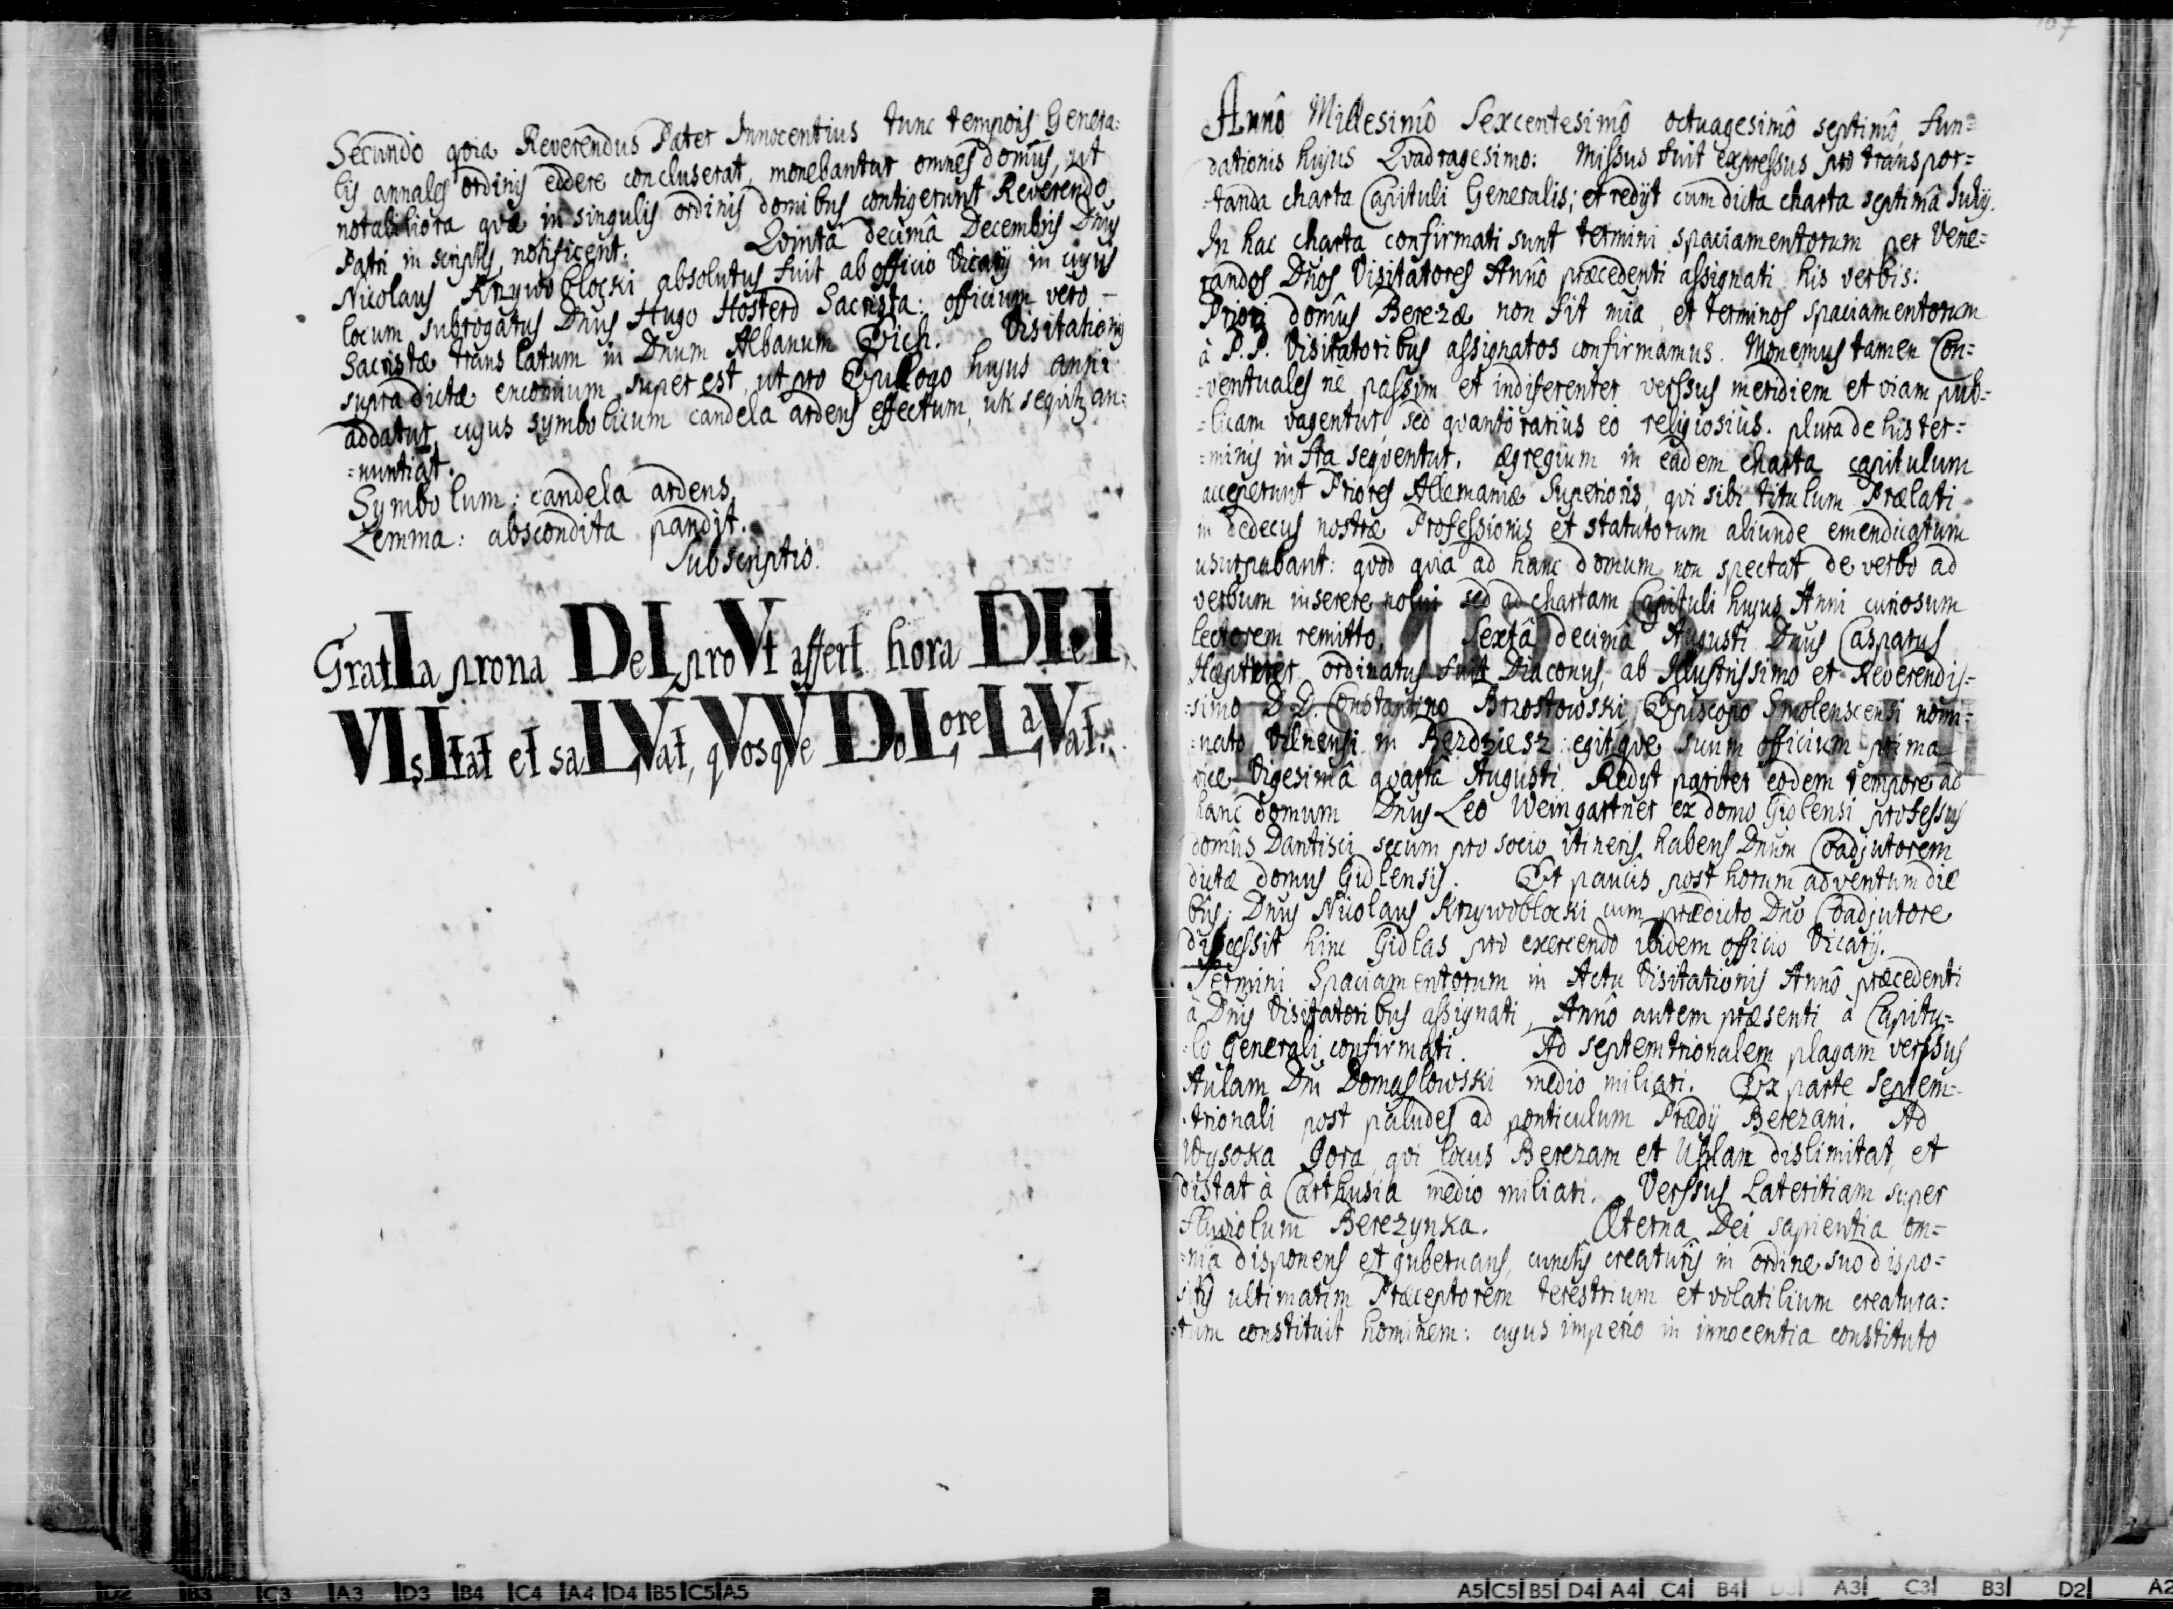 Secundo qvia Reverendus Pater Innocentius tunc temporis Genera:
lis annales ordinis edere concluserat, monebantur omnes domûs, ut
notabiliora qvæ in singulis ordinis domibus contigerunt Reverendo
Patri in scriptis notificent. Qvintâ decimâ Decembris Dnus
Nicolaus Krzywobłocki absolutus fuit ab officio Vicarij in cujus
locum subrogatus Dnus Hugo Hosterd Sacrista: officium vero
Sacristæ translatum in Dnum Albanum Eich. Visitationis
supradictæ encomium superest, ut pro Epilogo hujus anni
addatur, cujus symbolicum candela ardens effectum, uti seqvitur an:
=nuntiat.
Symbolum: candela ardens,
Lemma: abscondita pandit.
Subscriptio.
GratIa prona DeI, proVt affert hora DIeI,
VIsItat et saLVat, qVosqVe DoLore LaVat.
107
Annô Millesimô Sexcentesimô octuagesimô septimô, fun=
dationis hujus Qvadragesimo: Missus fuit expressus pro transpor=
=tanda charta Capituli Generalis; et redijt cum dicta charta septimâ Julij.
In hac charta confirmati sunt termini spaciamentorum per Vene=
randos Dnos Visitatores Annô præcedenti assignati his verbis:
Priori domûs Berezæ non fit mia, et terminos spaciamentorum
à P.P. Visitatoribus assignatos confirmamus. Monemus tamen Con=
=ventuales nè passim et indiferenter verssus meridiem et viam pub=
=licam vagentur, sed qvantò rariùs eò religiosiùs. plura de his ter=
=minis infra seqventur. Ægregium in eâdem charta capitulum
acceperunt Priores Allemaniæ Superioris, qvi sibi titulum Prælati
in dedecus nostræ Professionis et statutorum aliunde emendicatum
usurpabant: qvod qvia ad hanc domum non spectat de verbo ad
verbum inserere nolui sed ad chartam Capituli hujus Anni curiosum
lectorem remitto. Sextâ decimâ Augusti Dnus Casparus
ordinatus fuit Diaconus, ab Illustrissimo et Reverendis=
=simo D.D. Constantino Brzostowski, Episcopo Smolenscensi nomi=
=nato Vilnensi in Bezdziesz: egitqve suum officium prima
vice Vigesimâ qvartâ Augusti. Redijt pariter eodem tempore ad
hanc domum Dnus Leo Weingartner ex domo Gidlensi professus
domûs Dantisci secum pro socio itineris habens Dnum Coadjutorem
dictæ domus Gidlensis. Et paucis post horum adventum die
bus: Dnus Nicolaus Krzywobłocki cum prædicto Dno Coadjutore
discessit hinc Gidlas pro exercendo ibidem officio Vicarij.
Termini Spaciamentorum in Actu Visitationis Annô præcedenti
à Dnis Visitatoribus assignati, Annô autem præsenti à Capitu=
=lo Generali confirmati. Ad septemtrionalem plagam verssus
Aulam Dni Domasłowski medio miliari. Ex parte septem=
=trionali post paludes ad ponticulum Prædij Berezani. Ad
Wysoka Gora, qvi locus Berezam et Uhlan dislimitat, et
distat à Carthusia medio miliari. Verssus Lateritiam super
fluviolum Berezynka. Æterna Dei sapientia om=
=nia disponens et gubernans, cunctis creaturis in ordine suo dispo=
sitis ultimatim Præceptorem terestrium et volatilium creatura=
=rum constituit hominem: cujus imperio in innocentia constituto